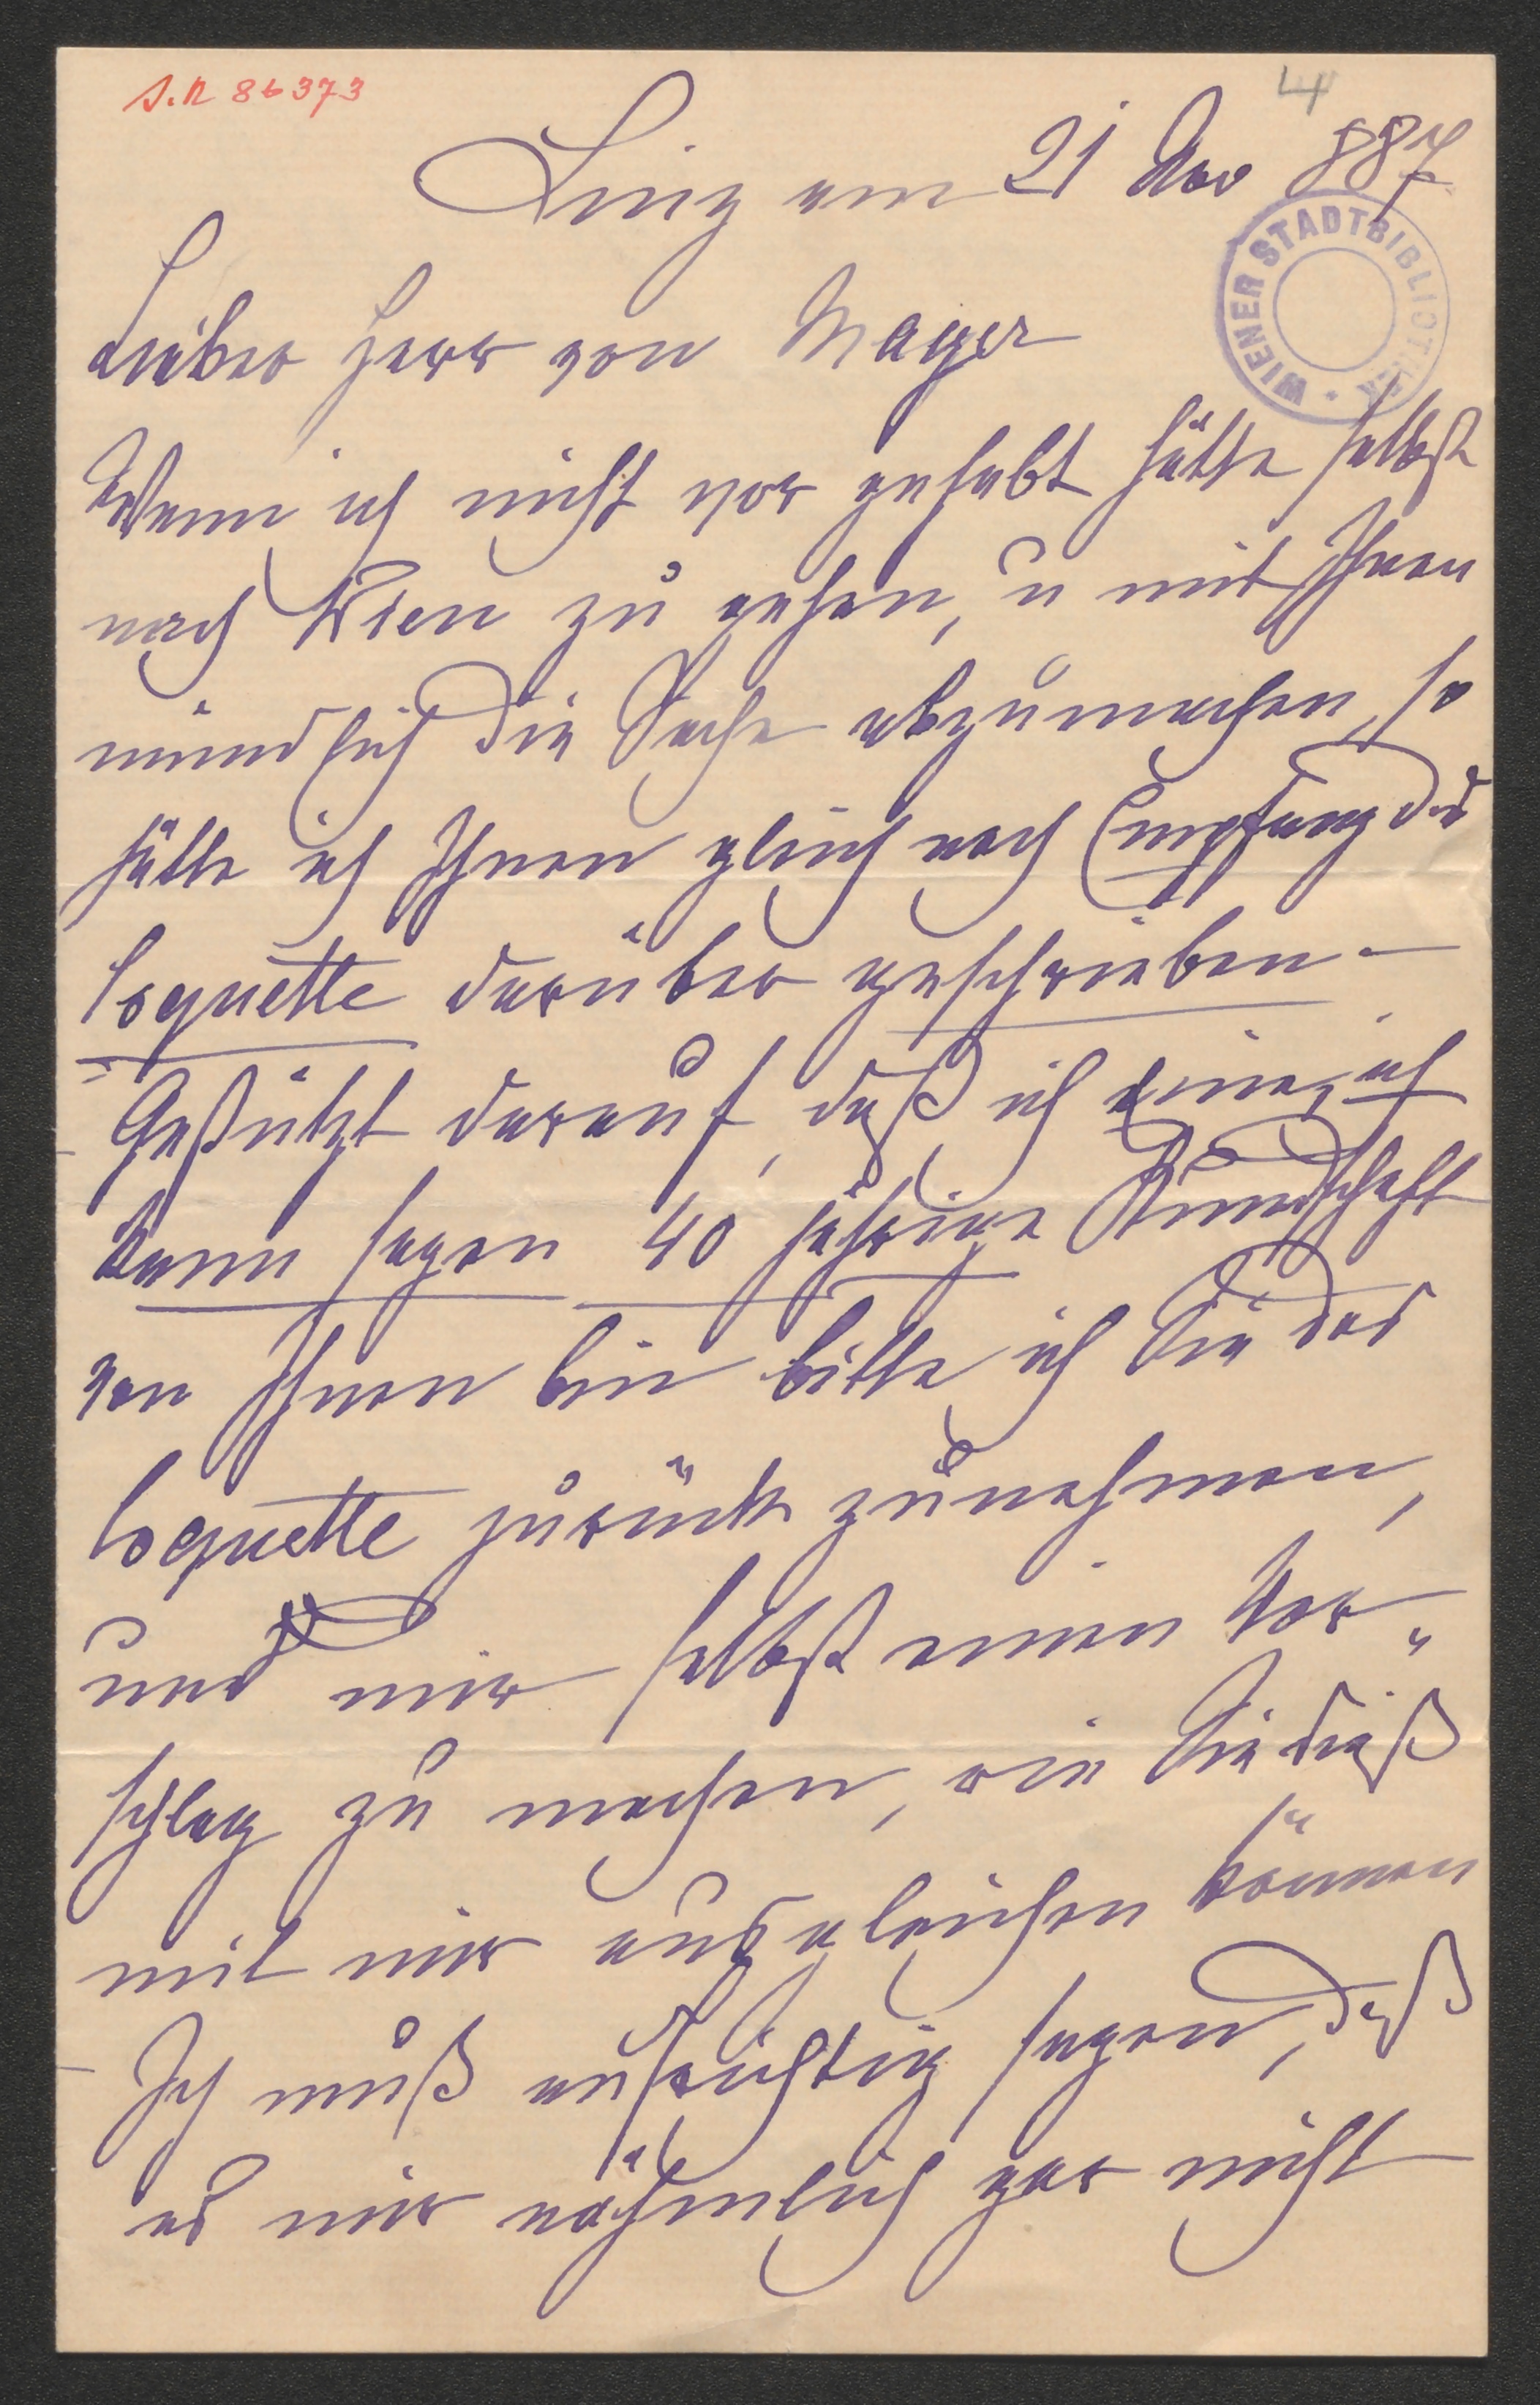 J.N 86373
4
Linz am 21 Nov 887
WIENER STADTBIBLIOTHEK
Lieber Herr von Mayer
Wenn ich nicht vor gehabt hätte selbst
nach Wien zu gehen, u mit Ihnen
mündlich die Sache abzumachen, so
hätte ich Ihnen gleich nach Empfang des
Coquette darüber geschrieben –
Gestützt darauf, daß ich eine, ich
kann sagen 40 jährige Kundschaft
von Ihnen bin bitte ich Sie das
Coquette zurück zunehmen,
und mir selbst einen Vor„
schlag zu machen, wie Sie dieß
mit mir ausgleichen können
Ich muß aufrichtig sagen, daß
es mir nähmlich gar nicht